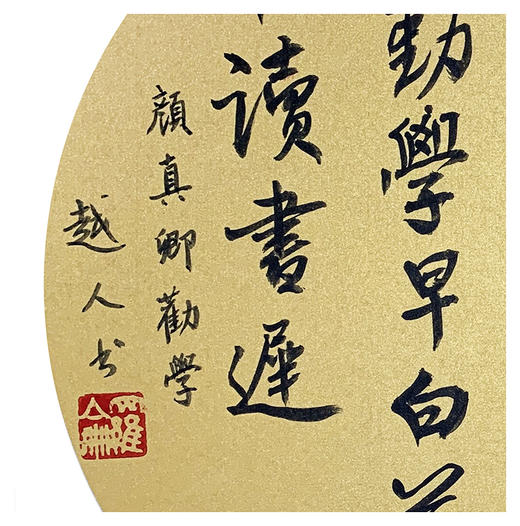 勤學早白
讀書遲
顔真卿勸學
越人书